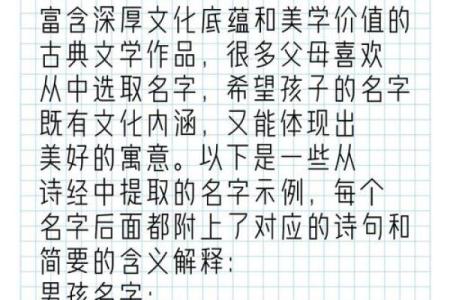 富含深厚文化底蕴和美学价值的
古典文学作品，很多父母喜欢
从中选取名字，希望孩子的名字
既有文化内涵，又能体现出
美好的寓意。以下是一些从
诗经中提取的名字示例，每个
名字后面都附上了对应的诗句和
简要的含义解释：
男孩名字：